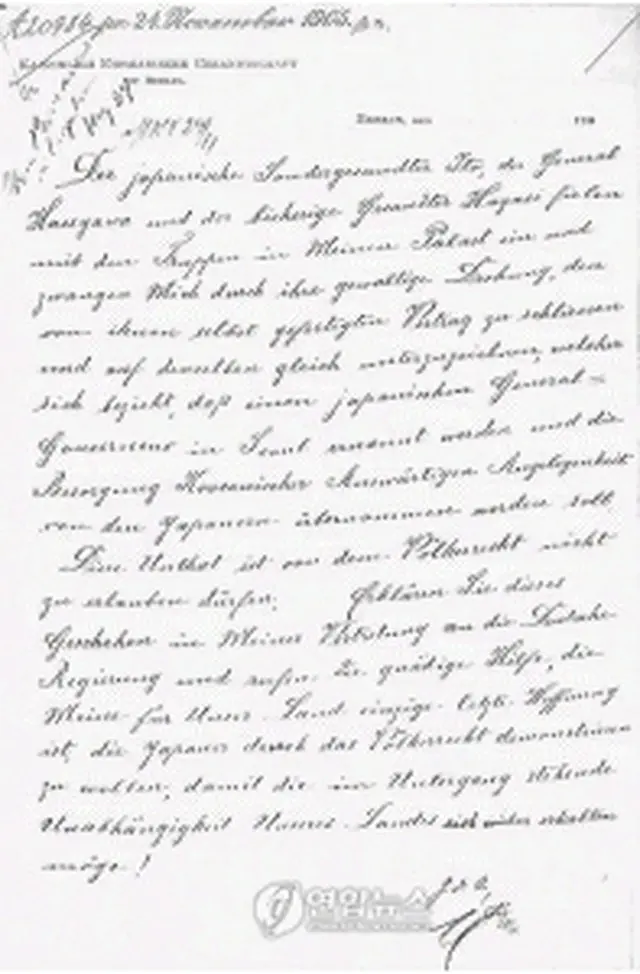 A20984 pr 24. November 1905. p.m.
BERLIN, DEN 190
Der japanische Sondergesandter Ito, der General
Hasegawa und der bisherige Gesandter Hayasi fielen
mit den Truppen in Meinen Palast ein und
zwangen Mich durch ihre gewaltige Drohung, den
von ihnen selbst gefertigten Vertrag zu schliessen
und auf denselben gleich unterzuzeichnen, welcher
sich bezieht, daß einen japanischen General-
Gouverneur in Seoul ernannt werden und die
Besorgung Koreanischer Auswärtigen Angelegenheit
von den Japanern übernommen werden soll
Diese Unthat ist von dem Völkerrecht nicht
zu erlauben dürfen. Erklären Sie dieses
Geschehen in Meiner Vertretung an die Deutsche
Regierung und rufen Sie gnädige Hilfe, die
Meine für Unser Land einzige letzte Hoffnung
ist, die Japaner durch das Völkerrecht demonstrieren
zu wollen, damit die im Untergang stehende
Unabhängigkeit Unseres Landes sich wieder erhalten
möge!
연합뉴스